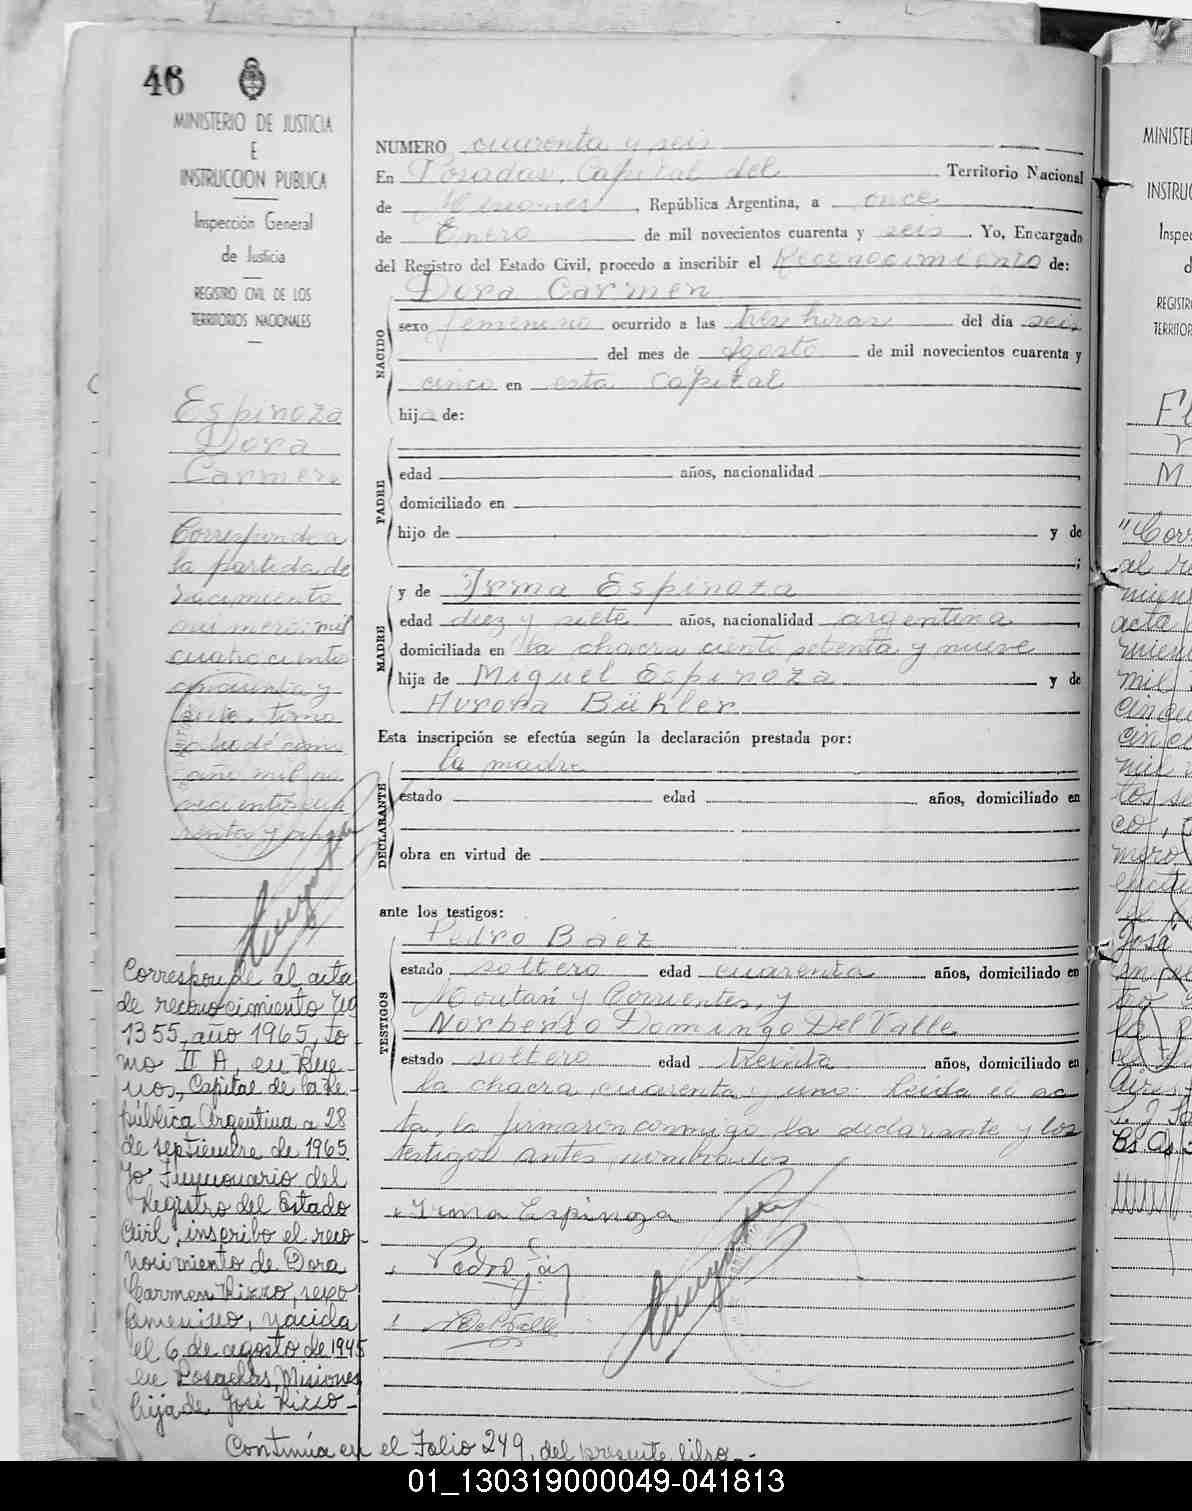 46
MINISTERIO DE JUSTICIA
E
INSTRUCCION PUBLICA
Inspección General
de Justicia
REGISTRO CIVIL DE LOS
TERRITORIOS NACIONALES
Espinoza
Dora
Carmen
Corresponde a
la partida de
nacimiento
número: mil
cuatrocientos
cincuenta y
siete, tomo
año mil no
vecientos cua
renta y cinco
Corresponde al acta
de reconocimiento No
1355, año 1965, to
mo II A, en Bue-
nos, Capital de la Re-
pública Argentina a 28
de septiembre de 1965
Yo Funcionario del
Registro del Estado
Civil, inscribo el reco-
nocimiento de Dora
Carmen Rizzo, sexo
femenino, nacida
el 6 de agosto de 1945
en Posadas, Misiones
hija de José Rizzo-
Continúa en el Folio 249, del presente libro.-
NUMERO cuarenta y seis
En Posadas, Capital del Territorio Nacional
de Misiones, República Argentina, a once
de Enero de mil novecientos cuarenta y seis. Yo, Encargado
del Registro del Estado Civil, procedo a inscribir el Reconocimiento de:
Dora Carmen
NACIDO
sexo femenino ocurrido a las tres horas del día seis
del mes de Agosto de mil novecientos cuarenta y
cinco en esta Capital
hija de:
PADRE
edad años, nacionalidad
domiciliado en
hijo de y de
;
MADRE
y de Irma Espinoza
edad diez y siete años, nacionalidad argentina
domiciliada en la chacra ciento setenta y nueve
hija de Miguel Espinoza y de
Aurora Bühler
Esta inscripción se efectúa según la declaración prestada por:
la madre
DECLARANTE
estado edad años, domiciliado en
obra en virtud de
ante los testigos:
TESTIGOS
Pedro Báez
estado soltero edad cuarenta años, domiciliado en
Roulán y Corrientes, y
Norberto Domingo Del Valle
estado soltero edad treinta años, domiciliado en
la chacra cuarenta y uno. Leída el ac
ta, la firmaron conmigo la declarante y los
testigos antes nombrados
Irma Espinoza
Pedro
MINISTE
INSTRUC
Inspec
d
REGISTR
TERRITOR
Fl
M
"Corr
acta
mil
José
Aires
01_130319000049-041813